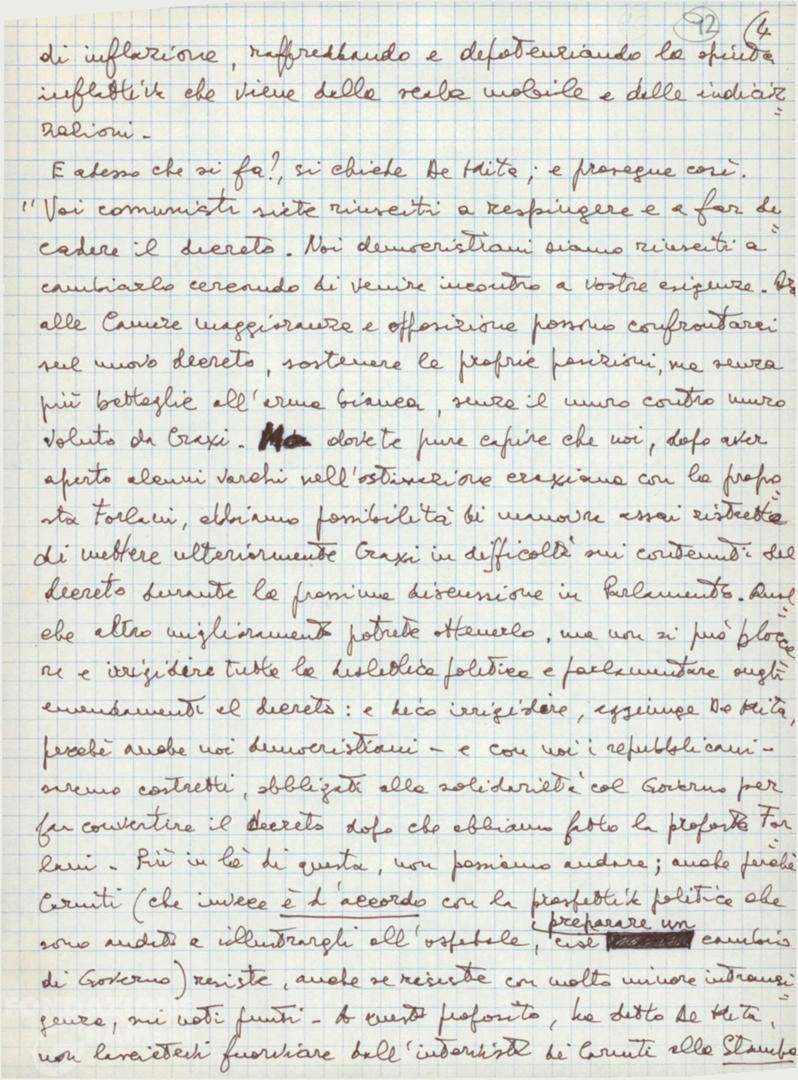 92 4
di inflazione, raffreddando e depotenziando la spinta
inflattiva che viene dalla scala mobile e delle indiciz
zazioni -
E adesso che si fa?, si chiede De Mita; e prosegue così.
"Voi comunisti siete riusciti a respingere e a far de
cadere il decreto. Noi democristiani siamo riusciti a
cambiarlo cercando di venire incontro a vostre esigenze. Ora
alle Camere maggioranza e opposizione possono confrontarsi
sul nuovo decreto, sostenere le proprie posizioni, ma senza
più battaglie all'arma bianca, senza il muro contro muro
voluto da Craxi. Ma dovete pure capire che noi, dopo aver
aperto alcuni varchi nell'ostinazione craxiana con la propo
sta Forlani, abbiamo possibilità di manovra assai ristrette
di mettere ulteriormente Craxi in difficoltà sui contenuti del
decreto durante la prossima discussione in Parlamento. Qual
che altro miglioramento potrete ottenerlo, ma non si può blocca
re e irrigidire tutta la dialettica politica e parlamentare sugli
emendamenti al decreto: e dico irrigidire, aggiunge De Mita,
perché anche noi democristiani - e con noi i repubblicani -
saremo costretti, obbligati alla solidarietà col Governo per
far convertire il decreto dopo che abbiamo fatto la proposta For
lani - Più in là di questa, non possiamo andare; anche perché
Carniti (che invece è d'accordo con la prospettiva politica che
preparare un
sono andato a illustrargli all'ospedale, cioè cambio
di Governo) resiste, anche se resiste con molta minore intransi
genza, sui noti punti - A questo proposito, ha detto De Mita,
non lasciatevi fuorviare dall'intervista di Carniti alla Stampa